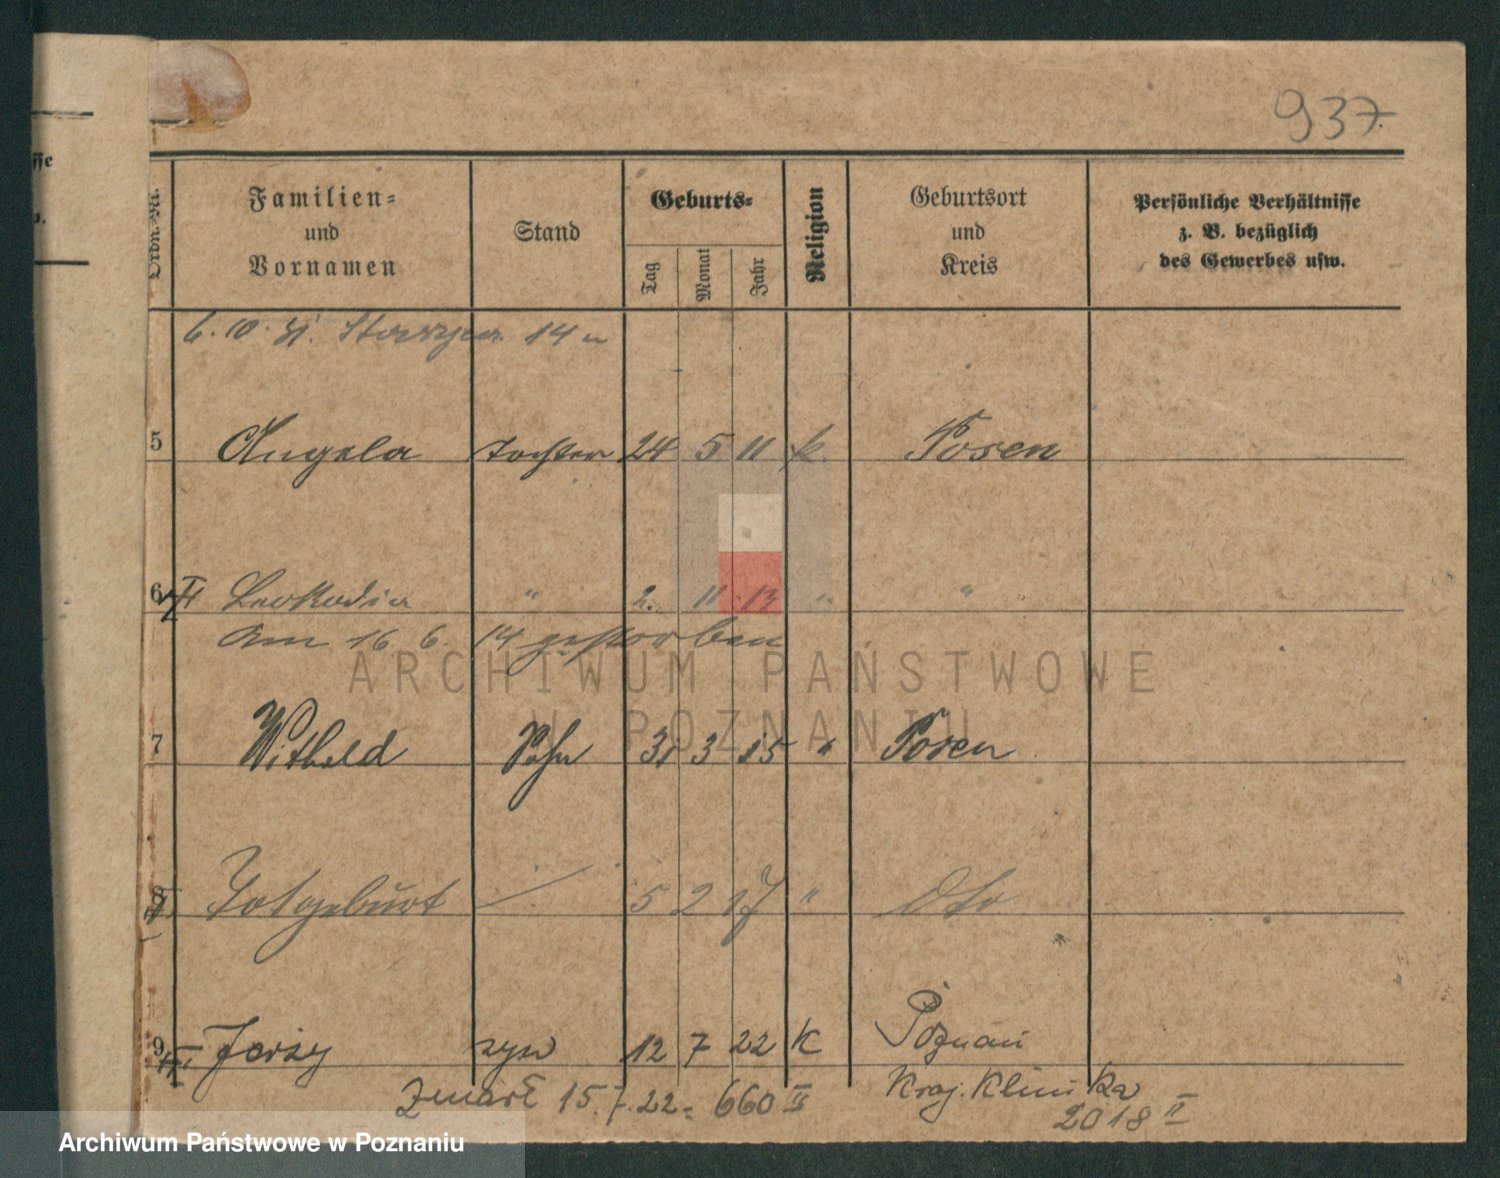 937
Ordn.-Nr.
Familien=
und
Vornamen
Stand
Geburts=
Tag
Monat
Jahr
Religion
Geburtsort
und
Kreis
Persönliche Verhältnisse
z. B. bezüglich
des Gewerbes usw.
6. 10. 14
5 Angela Tochter 24 5 11 k. Posen
6 Leokadia " 2. 11. 13 " "
am 16 6. 14 gestorben
7 Withold Sohn 31 3 15 " Posen
8 Totgeburt 5 2 17 " Dto
9 Jerzy syn 12 7 22 K Poznań
Kraj. Klinika
zmarł 15. 7. 22 = 660 II
2018 II
ARCHIWUM PAŃSTWOWE
W POZNANIU
Archiwum Państwowe w Poznaniu